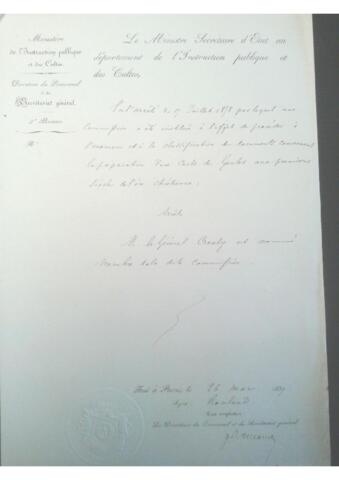 Ministère
de l'Instruction publique
et des Cultes
Direction du Personnel
et du
Secrétariat général.
1er Bureau
N°
Le Ministre Secrétaire d'Etat au
département de l'Instruction publique et
des Cultes,
Vu l'arrêté du 17 Juillet 1858 par lequel une
Commission a été instituée à l'effet de procéder à
l'examen et à la classification des documents concernant
la préparation d'une Carte des Gaules aux premiers
siècles de l'ère chrétienne;
Arrête
M. le Général Creuly est nommé
membre de la dite Commission.
Fait à Paris, le 26 mai 1859
Signé Rouland
Pour ampliation
Le Directeur du Personnel et du Secrétariat général